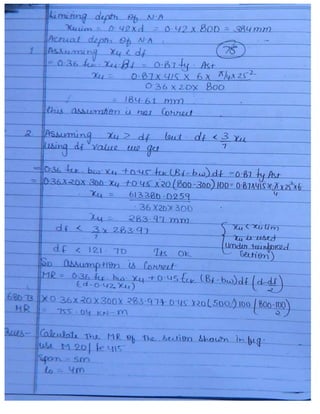 Limiting depth of N·A
xulim = 0.42xd = 0.42 x 800 = 384mm
Actual depth of N·A
75
1 Assuming xu < df
= 0.36 fck xu Bf = 0.87 fy Ast
xu = 0.87x415 x 6 x π/4 x 25²
0.36 x 20 x 800
= 184.61 mm
this assumtion is not correct
2. Assuming xu > df but df < 3/7 xu
using df value we get
= 0.36 fck bw xu + 0.45 fck (Bf - bw) df = 0.87 fy Ast
= 0.36x20x300 xu + 0.45 x 20 (800-300) 100 = 0.87x415 x π/4 x 25² x 6
xu = 613380.0259
.36x20x300
xu = 283.97 mm
df < 3/7 x 283.97
df < 121.70 Its OK
{ xu < xulim
xu is used
under reinforced
section }
So assumption is correct
MR = 0.36 fck bw xu + 0.45 fck (Bf - bw) df (d - df/2)
(d - 0.42 xu)
x 0.36 x 20 x 300 x 283.97 + 0.45 x 20 (500) 100 (800 - 100/2)
MR = 755.04 KN-m
Ques- Calculate the MR of the section shown in fig:
use M 20 / fe 415
Span = 5m
lo = 4m